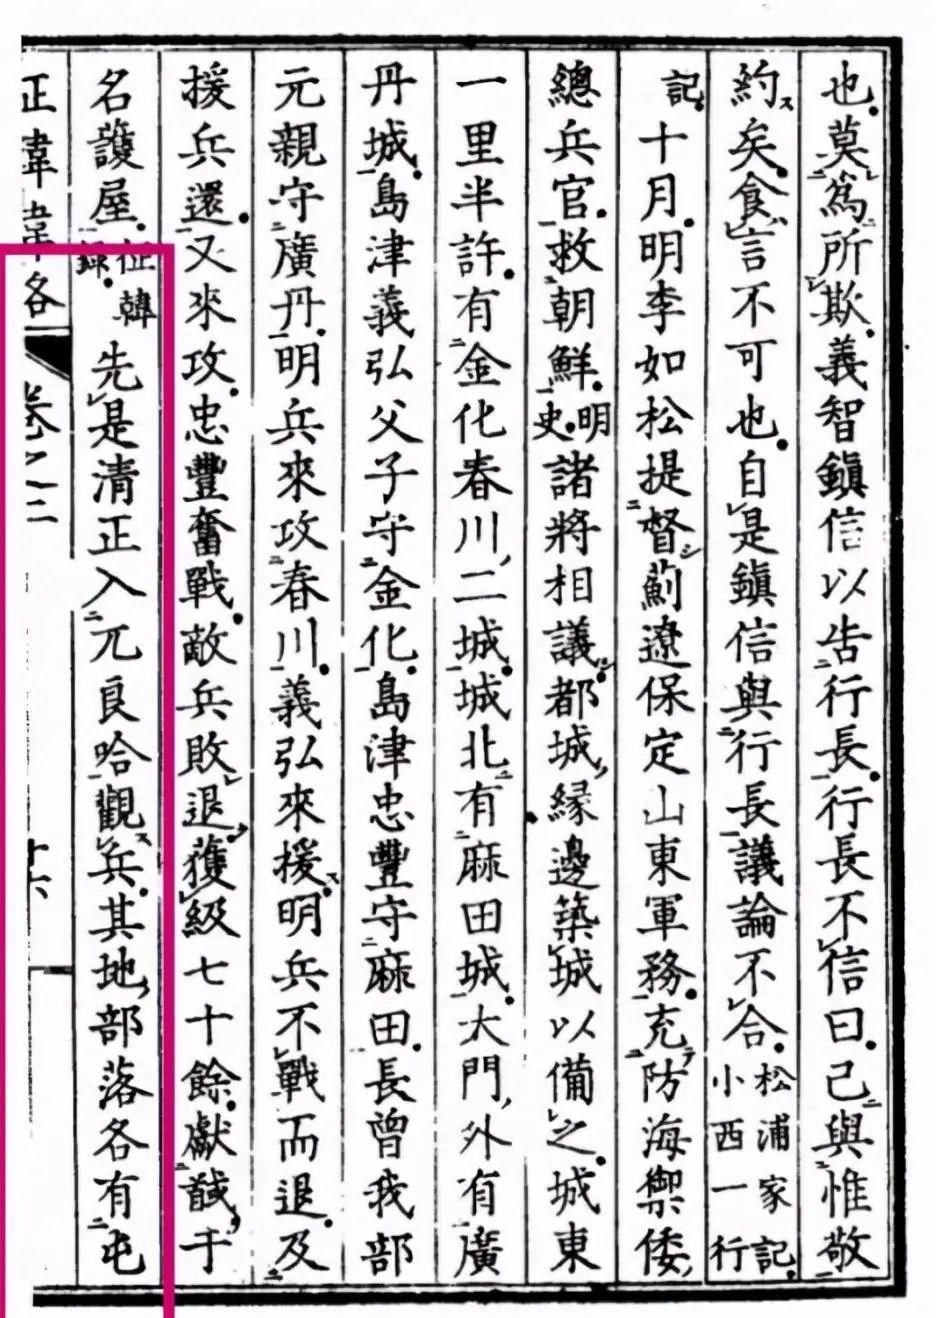 也莫爲所欺義智鎭信以告行長行長不信曰己與惟敬
約矣食言不可也自是鎭信與行長議論不合松浦家記小西一行
記十月明李如松提督薊遼保定山東軍務充防海禦倭
總兵官救朝鮮明史諸將相議都城緣邊築城以備之城東
一里半許有金化春川二城城北有麻田城大門外有廣
丹城島津義弘父子守金化島津忠豐守麻田長曾我部
元親守廣丹明兵來攻春川義弘來援明兵不戰而退及
援兵還又來攻忠豐奮戰敵兵敗退獲級七十餘獻馘于
名護屋征韓錄先是清正入兀良哈觀兵其地部落各有屯
正韓 各 卷之二 十六